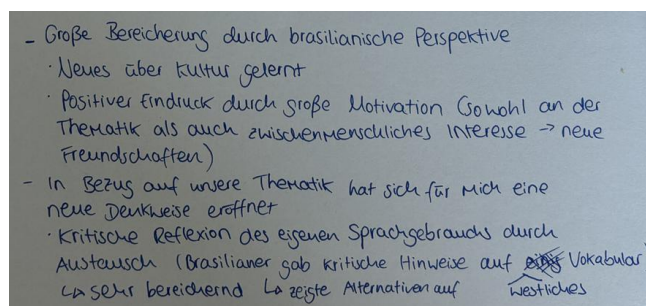 - Große Bereicherung durch brasilianische Perspektive
· Neues über Kultur gelernt
· Positiver Eindruck durch große Motivation (sowohl an der
Thematik als auch zwischenmenschliches Interesse → neue
Freundschaften)
- In Bezug auf unsere Thematik hat sich für mich eine
neue Denkweise eröffnet
· Kritische Reflexion des eigenen Sprachgebrauchs durch
Austausch (Brasilianer gab kritische Hinweise auf Vokabular
↳ sehr bereichernd ↳ zeigte Alternativen auf westliches